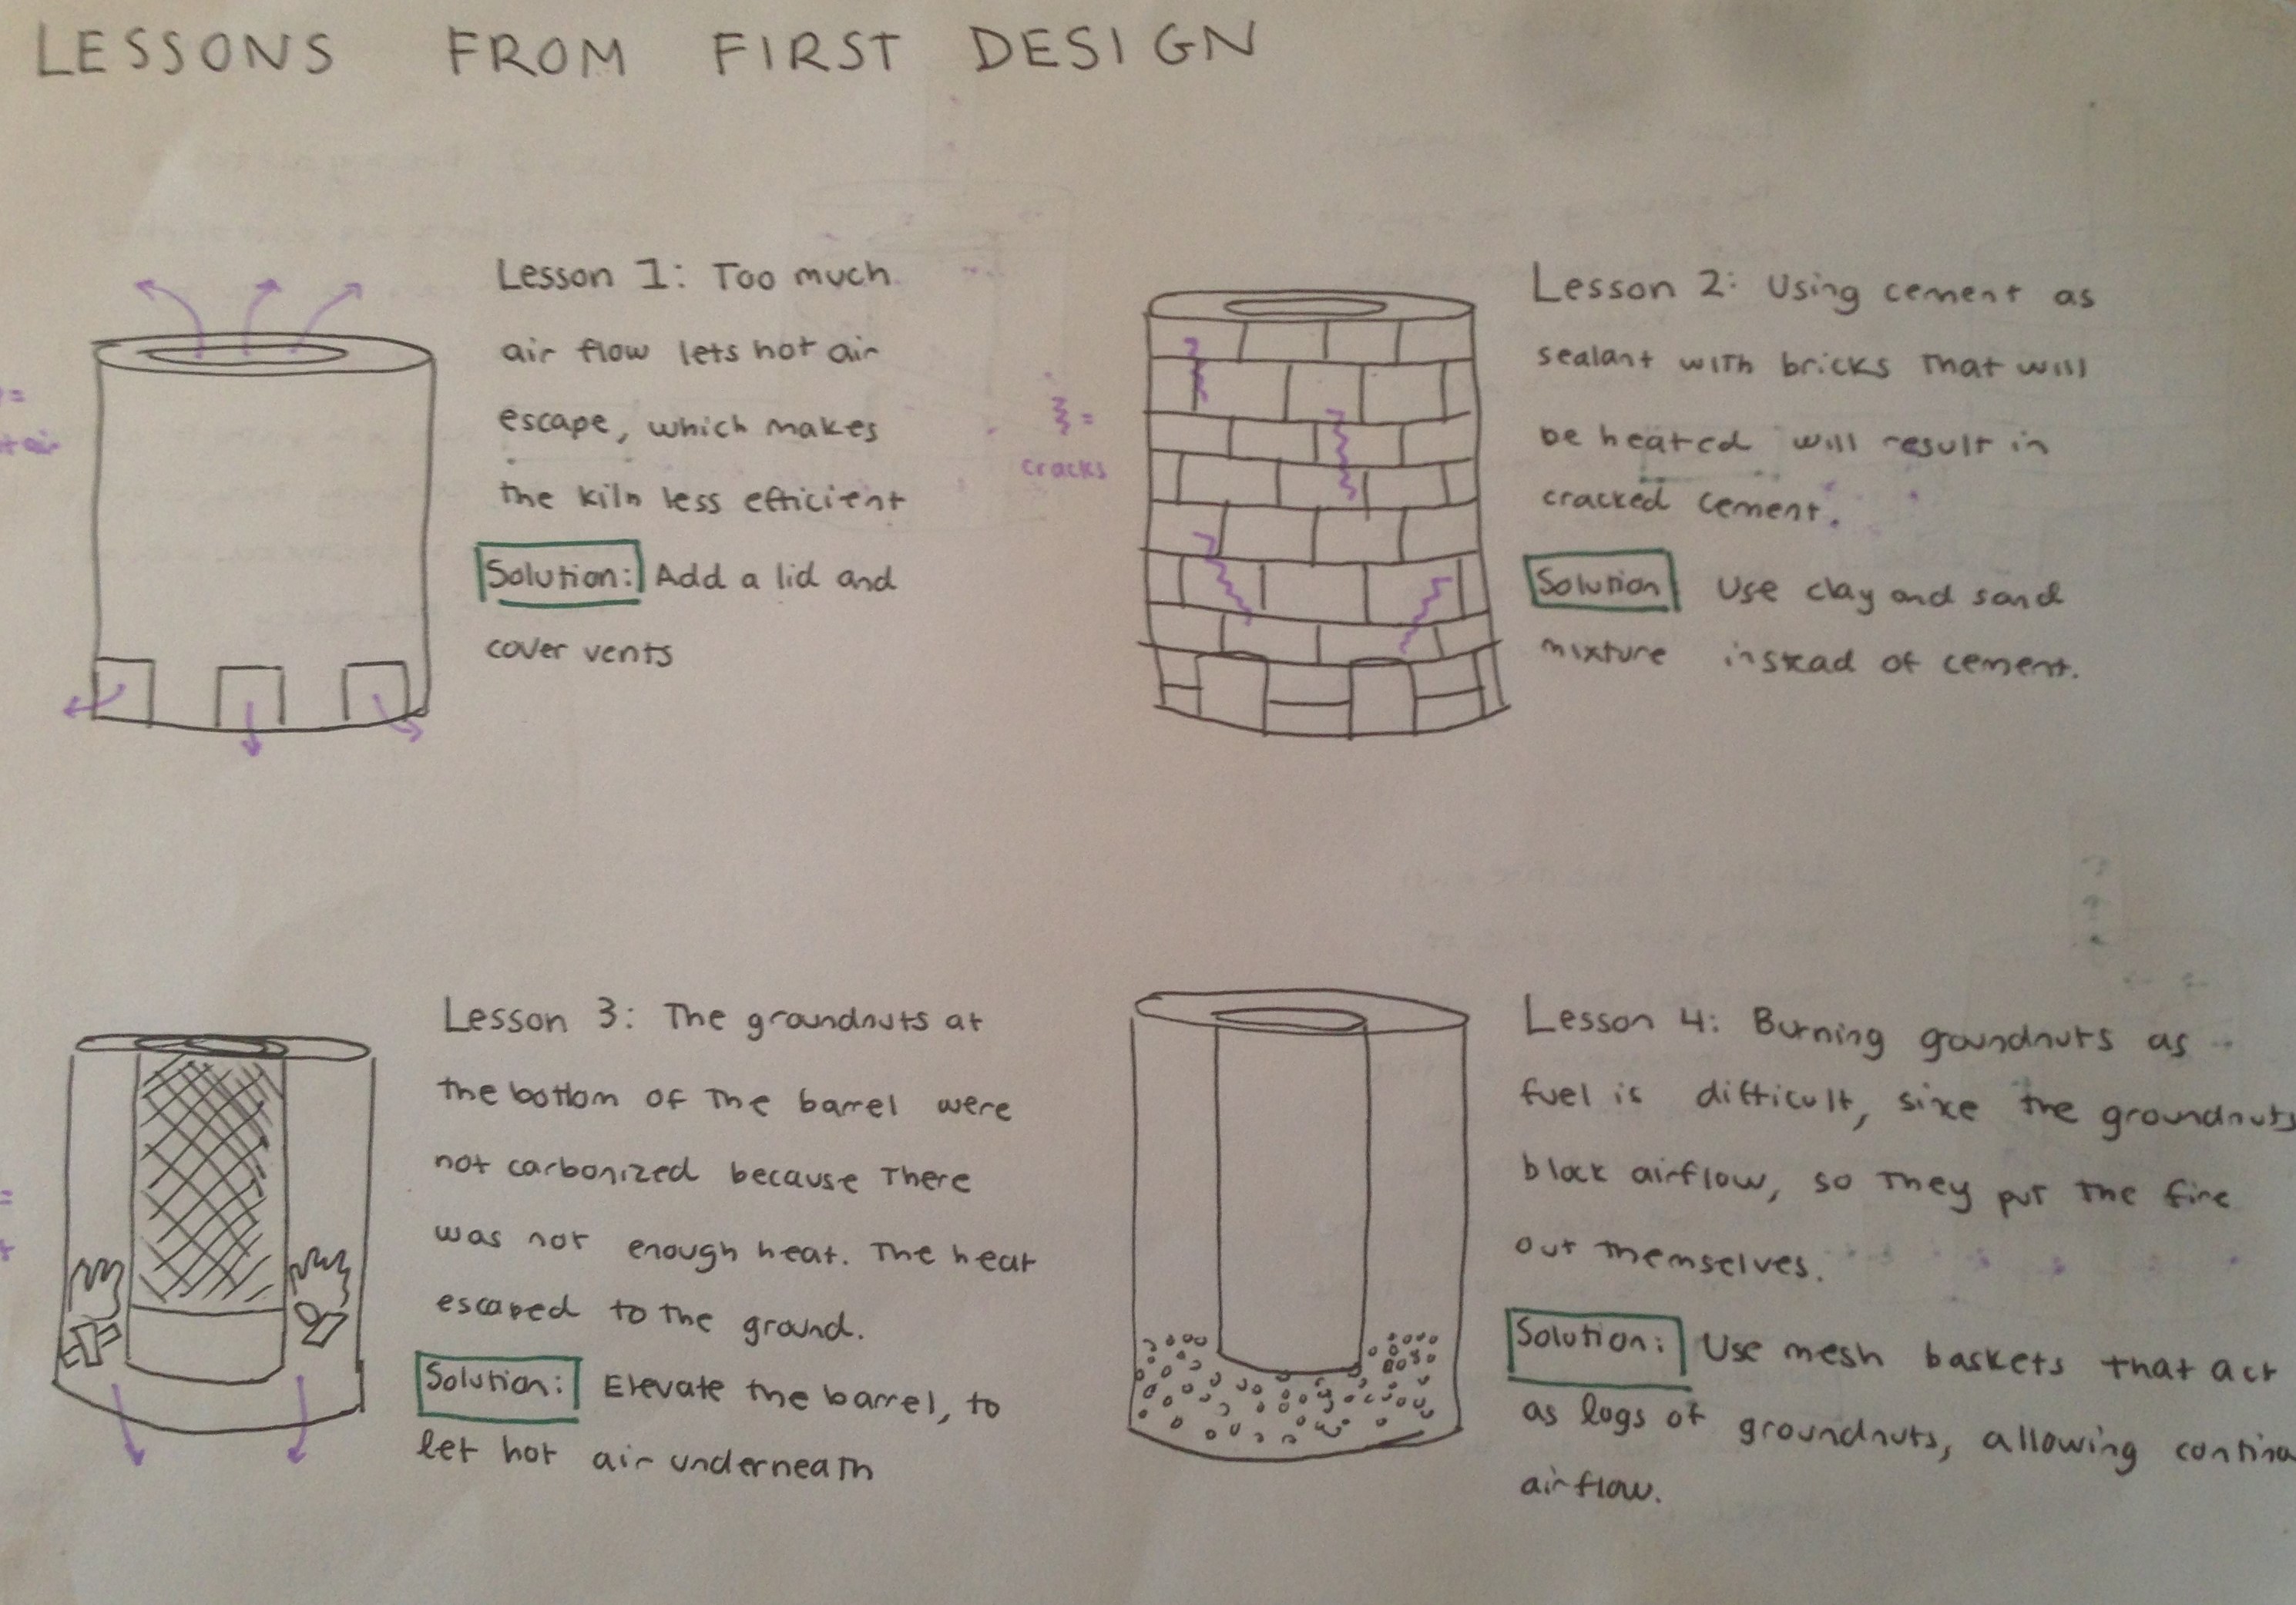 LESSONS FROM FIRST DESIGN
Lesson 1: Too much
air flow lets hot air
escape, which makes
the kiln less efficient
Solution: Add a lid and
cover vents
=
air
Lesson 2: Using cement as
sealant with bricks that will
be heated will result in
cracked cement.
Solution Use clay and sand
mixture instead of cement.
=
cracks
Lesson 3: The groundnuts at
the bottom of the barrel were
not carbonized because there
was not enough heat. The heat
escaped to the ground.
Solution: Elevate the barrel, to
let hot air underneath
=
Lesson 4: Burning groundnuts as
fuel is difficult, since the groundnuts
block airflow, so they put the fire
out themselves.
Solution: Use mesh baskets that act
as logs of groundnuts, allowing
airflow.